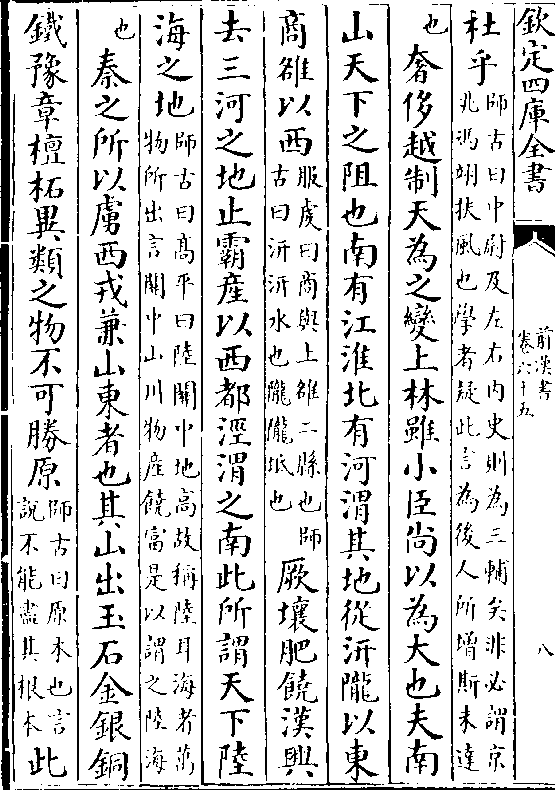 欽定四庫全書
前漢書
卷六十五
八
杜乎師古曰中尉及左右内史則為三輔矣非必謂京
兆馮翊扶風也學者疑此言為後人所增斯未達
也奢侈越制天為之變上林雖小臣尚以為大也夫南
山天下之阻也南有江淮北有河渭其地從汧隴以東
商雒以西服虔曰商與上雒二縣也師
古曰汧汧水也隴隴坻也厥壤肥饒漢興
去三河之地止霸産以西都涇渭之南此所謂天下陸
海之地師古曰高平曰陸關中地高故稱陸耳海者萬
物所出言關中山川物産饒富是以謂之陸海
也秦之所以虜西戎兼山東者也其山出玉石金銀銅
鐵豫章檀柘異類之物不可勝原師古曰原本也言
說不能盡其根本此